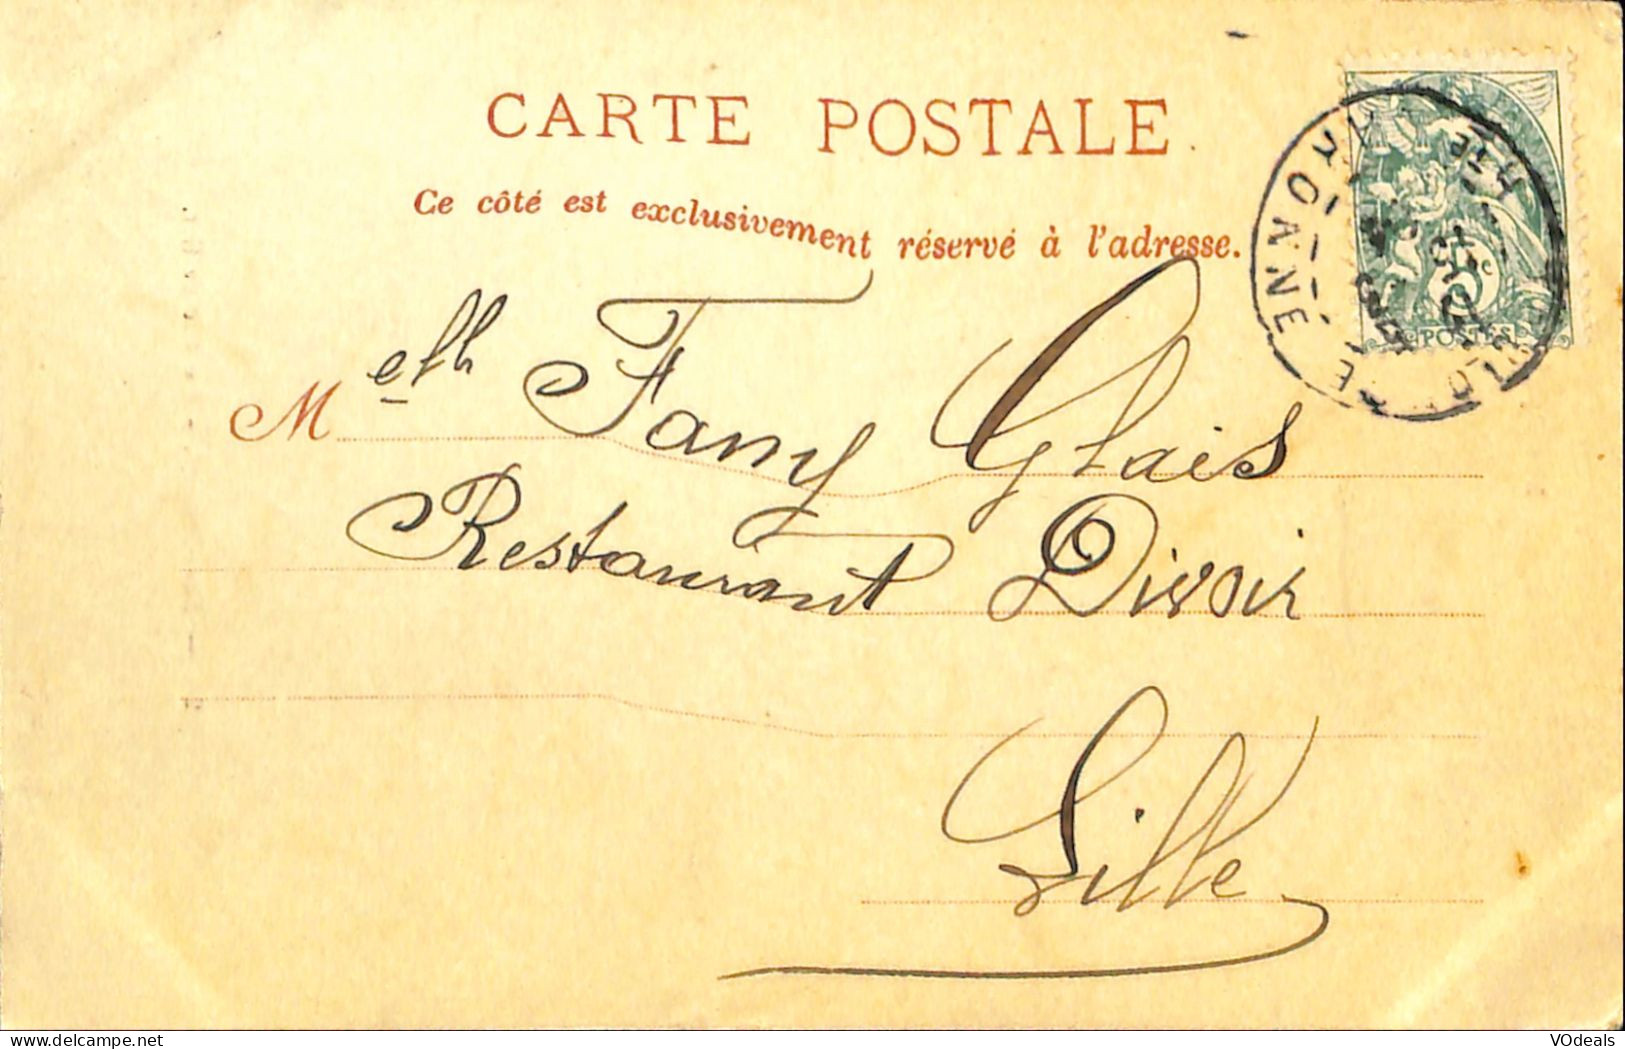 CARTE POSTALE
Ce côté est exclusivement réservé à l'adresse.
Melle Fany Glais
Restaurant Divoir
Lille
5c
POSTES
VOdeals
delcampe.net